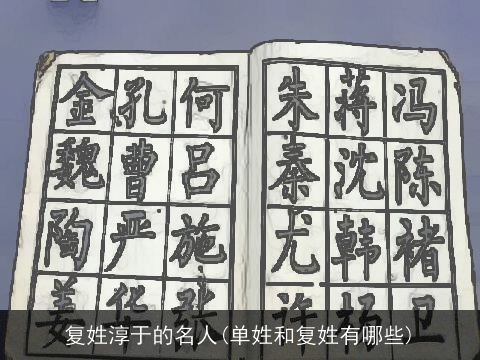 冯陈褚卫
蒋沈韩杨
朱秦尤许
何吕施张
孔曹严华
金魏陶姜
复姓淳于的名人(单姓和复姓有哪些)